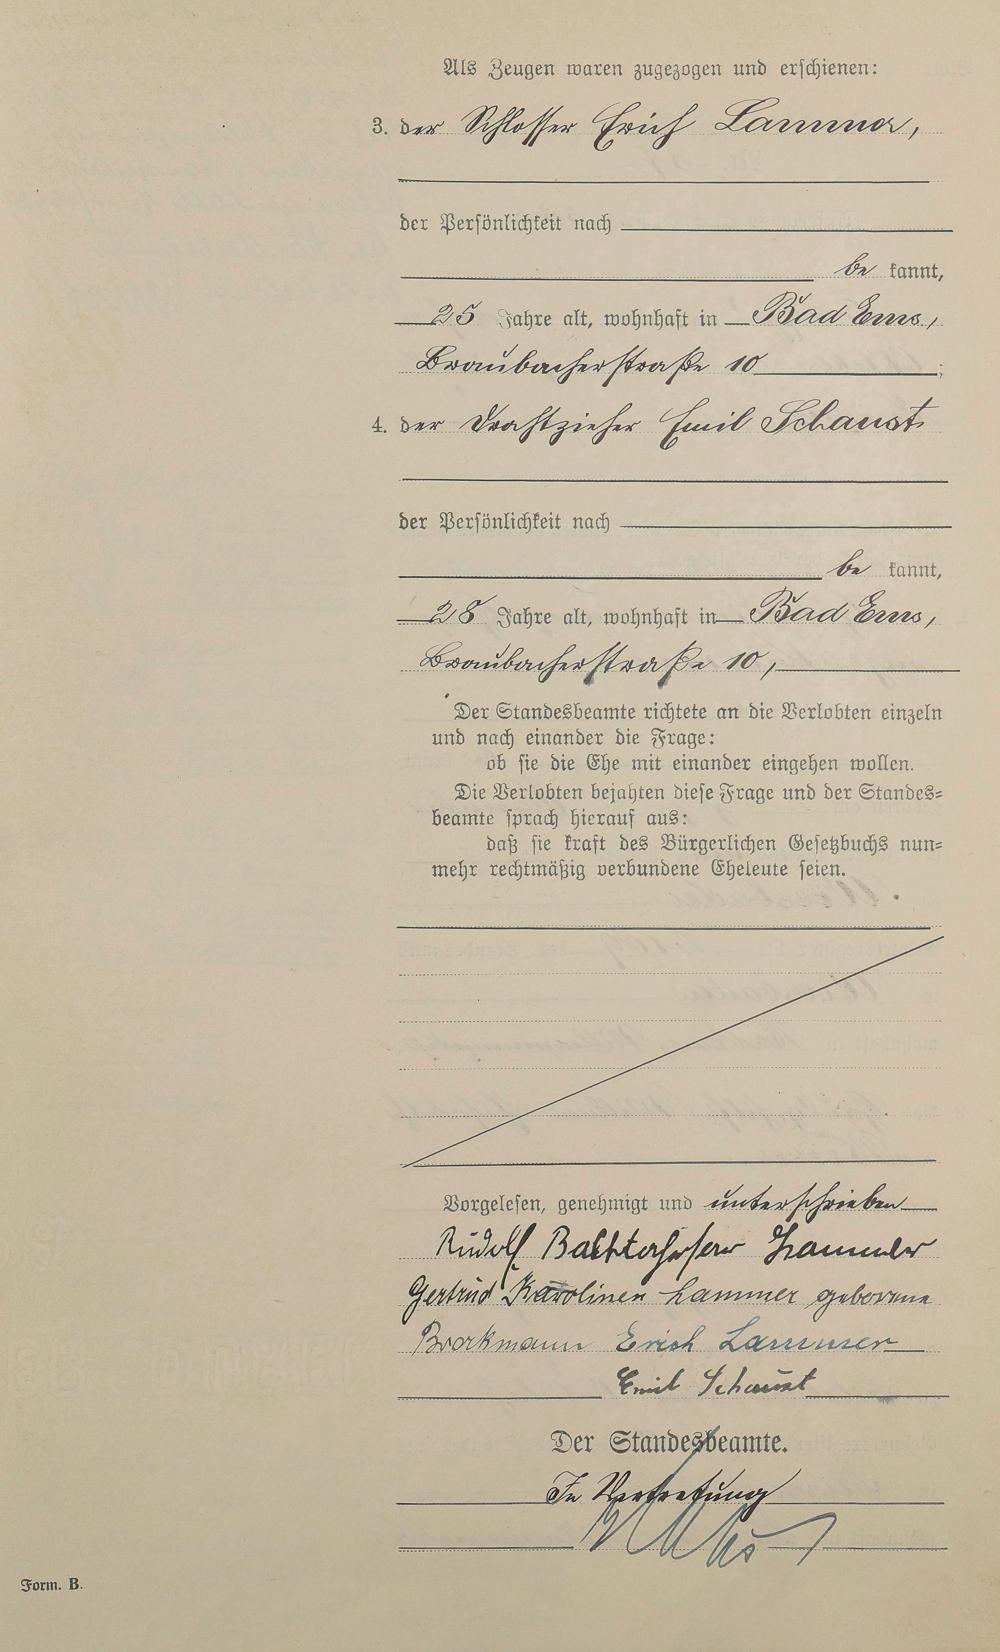 Als Zeugen waren zugezogen und erschienen:
3. der Schlosser Erich Lammer,
der Persönlichkeit nach
be kannt,
25 Jahre alt, wohnhaft in Bad Ems,
Braubacherstraße 10;
4. der Drahtzieher Emil Schaust
der Persönlichkeit nach
be kannt,
28 Jahre alt, wohnhaft in Bad Ems,
Braubacherstraße 10,
Der Standesbeamte richtete an die Verlobten einzeln
und nach einander die Frage:
ob sie die Ehe mit einander eingehen wollen.
Die Verlobten bejahten diese Frage und der Standes=
beamte sprach hierauf aus:
daß sie kraft des Bürgerlichen Gesetzbuchs nun=
mehr rechtmäßig verbundene Eheleute seien.
Vorgelesen, genehmigt und unterschrieben
Rudolf Lammer
Gertrud Karolinen Lammer geborene
Brockmann Erich Lammer
Emil Schaust
Der Standesbeamte.
In Vertretung
Form. B.